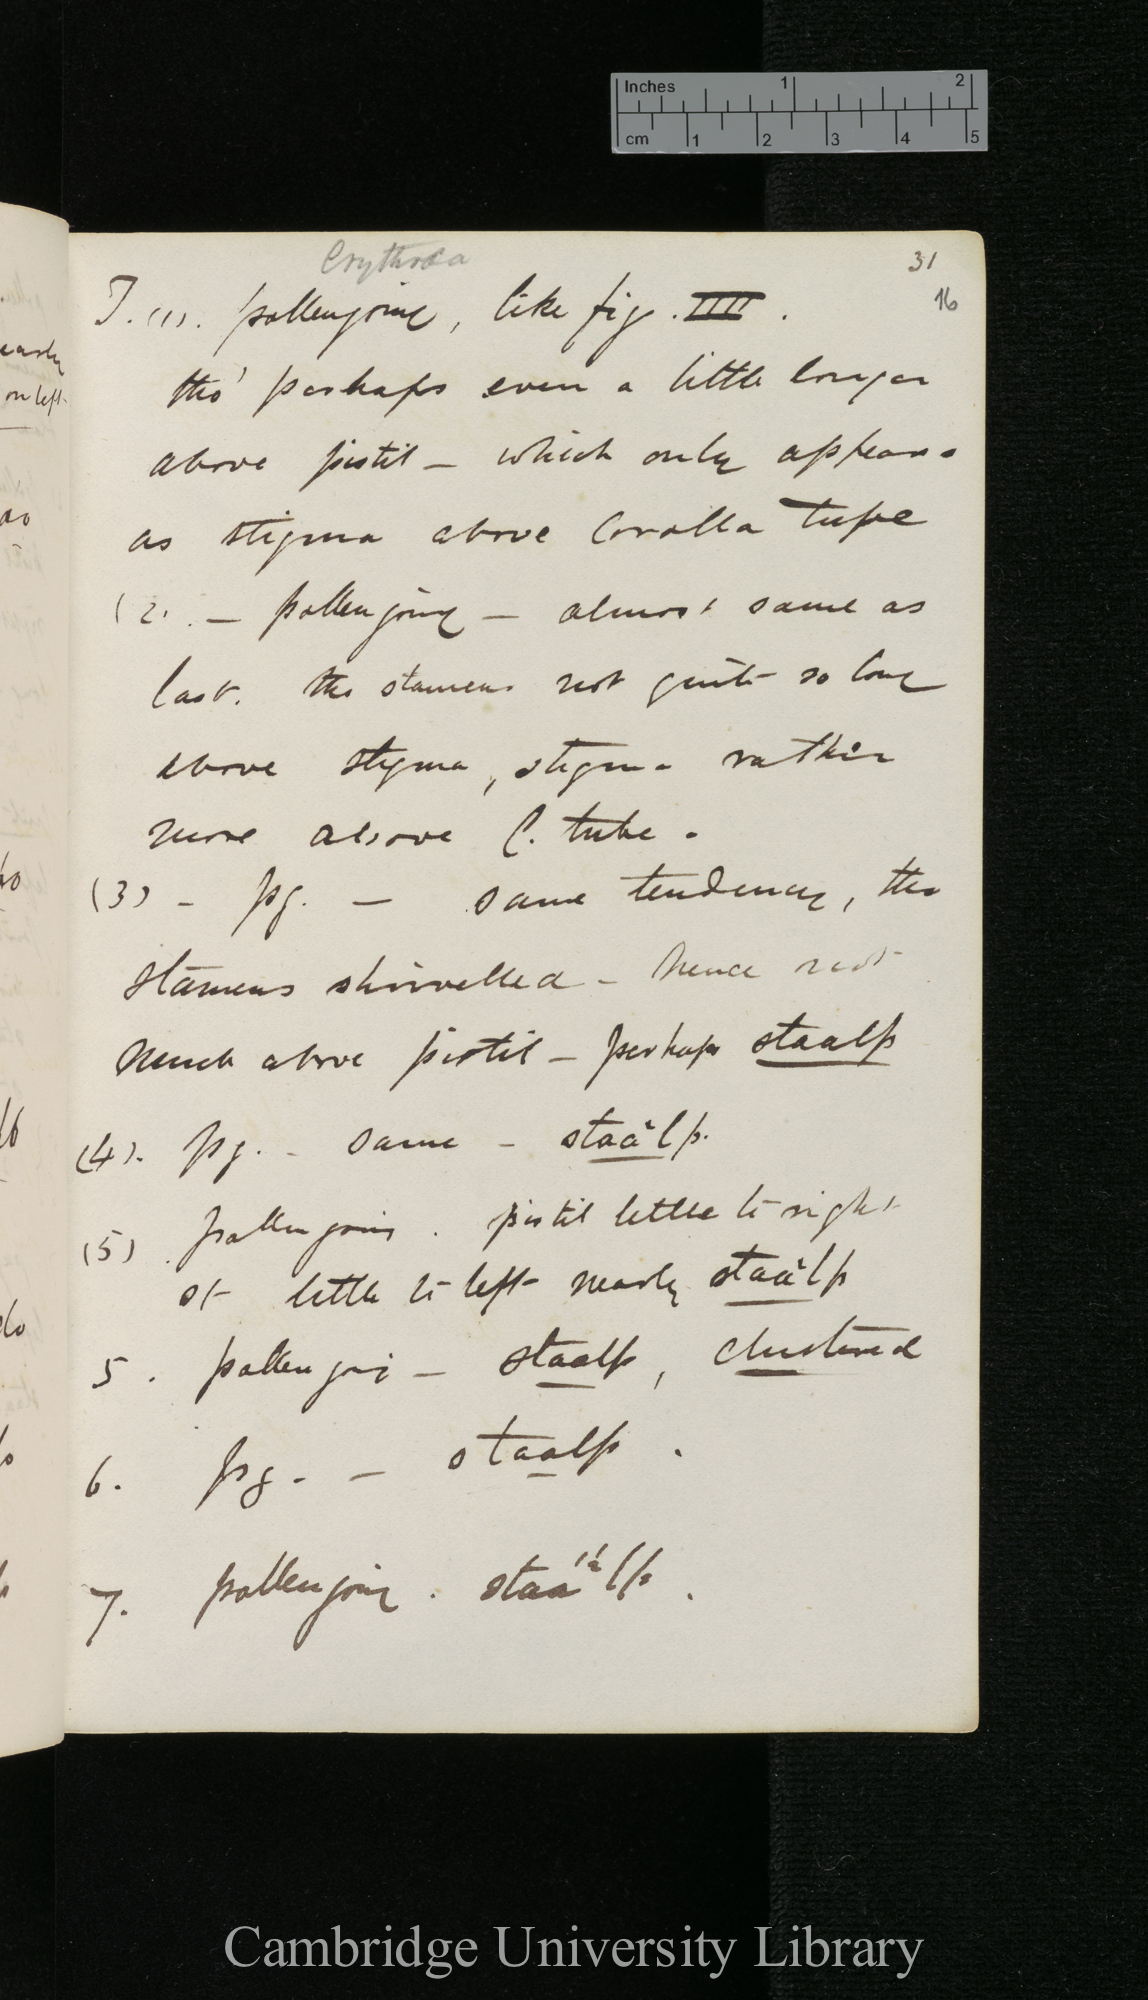 Inches 1 2
cm 1 2 3 4 5
Erythræa
31
16
J. (1). pollengoing, like fig. IIII.
tho' perhaps even a little longer
above pistil – which only appears
as stigma above Corolla tube
(2. – pollengoing – almost same as
last. tho stamens not quite so long
above stigma, stigma rather
more above C. tube.
(3) – pg. – same tendency, tho
stamens shrivelled – hence not
much above pistil – perhaps staalp
(4). pg. – same – staalp.
(5) pollengoing. pistil little to right
st little to left nearly staalp
5. pollengoing – staalp, clustered
6. pg. – staalp.
7. pollengoing. staalp.
early
on left
Cambridge University Library